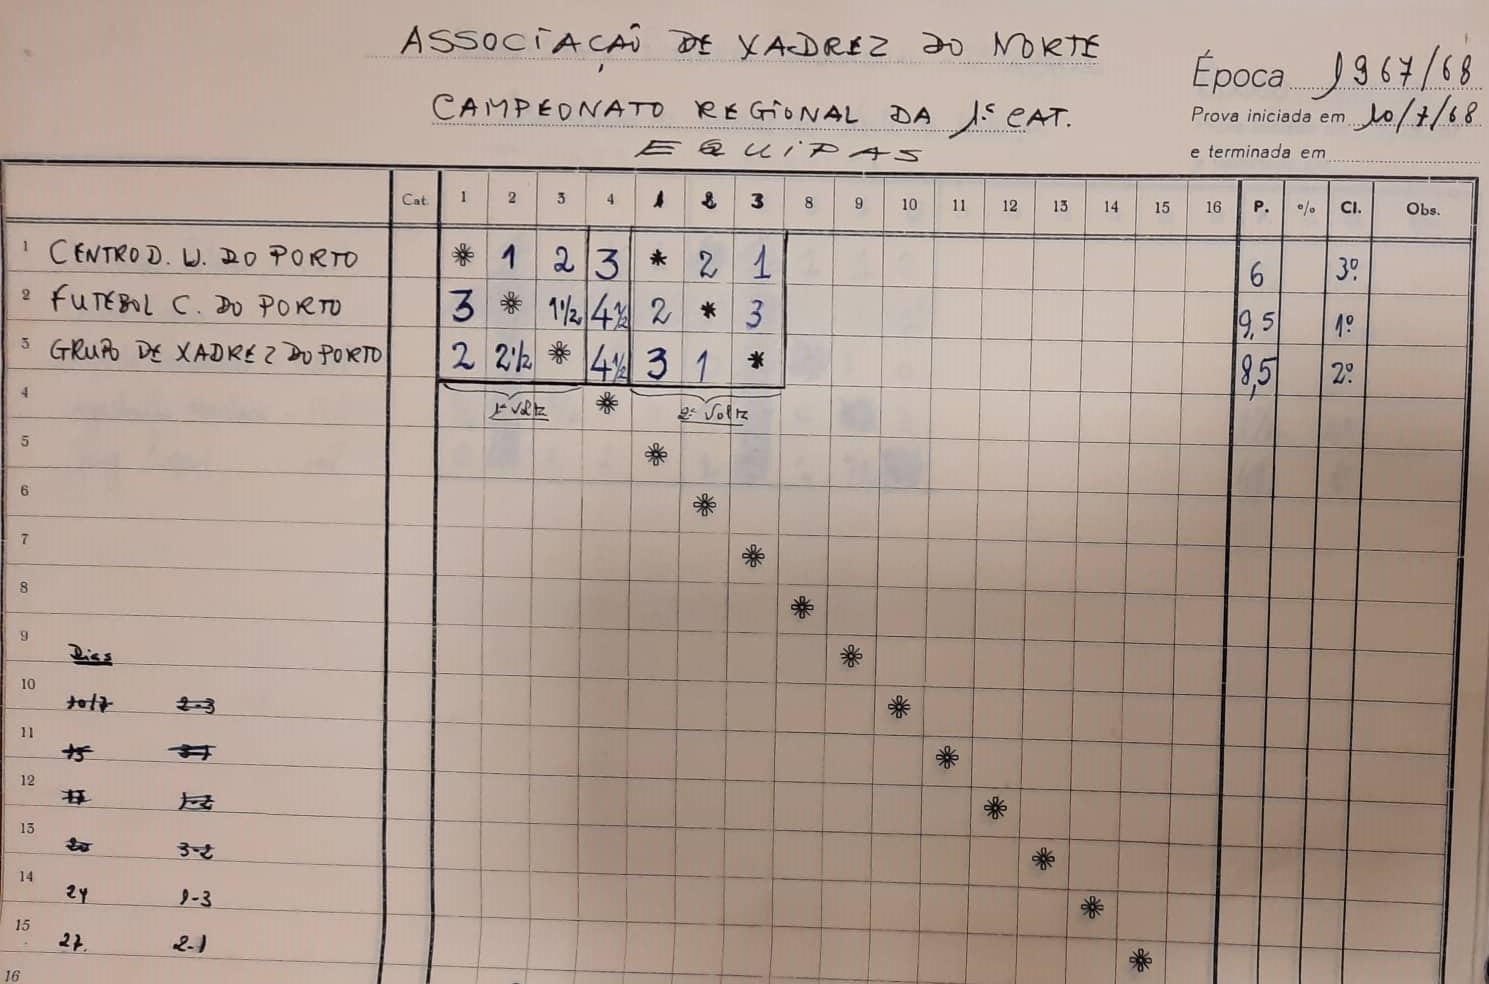 ASSOCIAÇAÕ DE XADREZ DO NORTE
CAMPEONATO REGIONAL DA 1.ª CAT.
EQUIPAS
Época 1967/68
Prova iniciada em 10/7/68
e terminada em
Cat. 1 2 3 4 1 2 3 8 9 10 11 12 13 14 15 16 P. % Cl. Obs.
1 CENTRO D. U. DO PORTO * 1 2 3 * 2 1 6 3º
2 FUTEBOL C. DO PORTO 3 * 1½ 4½ 2 * 3 9,5 1º
3 GRUPO DE XADREZ DO PORTO 2 2½ * 4½ 3 1 * 8,5 2º
4 1ª Volta * 2ª Volta
5 *
6 *
7 *
8 *
9 Dias *
10 10/7 2-3 *
11 15 3-1 *
12 17 1-2 *
13 20 3-2 *
14 24 1-3 *
15 27. 2-1 *
16